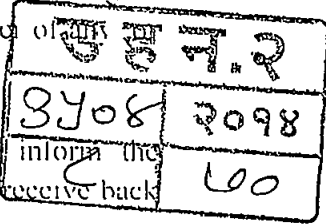 of any or
उ ह न.२
३५०४ २०१४
inform the
७०
receive back